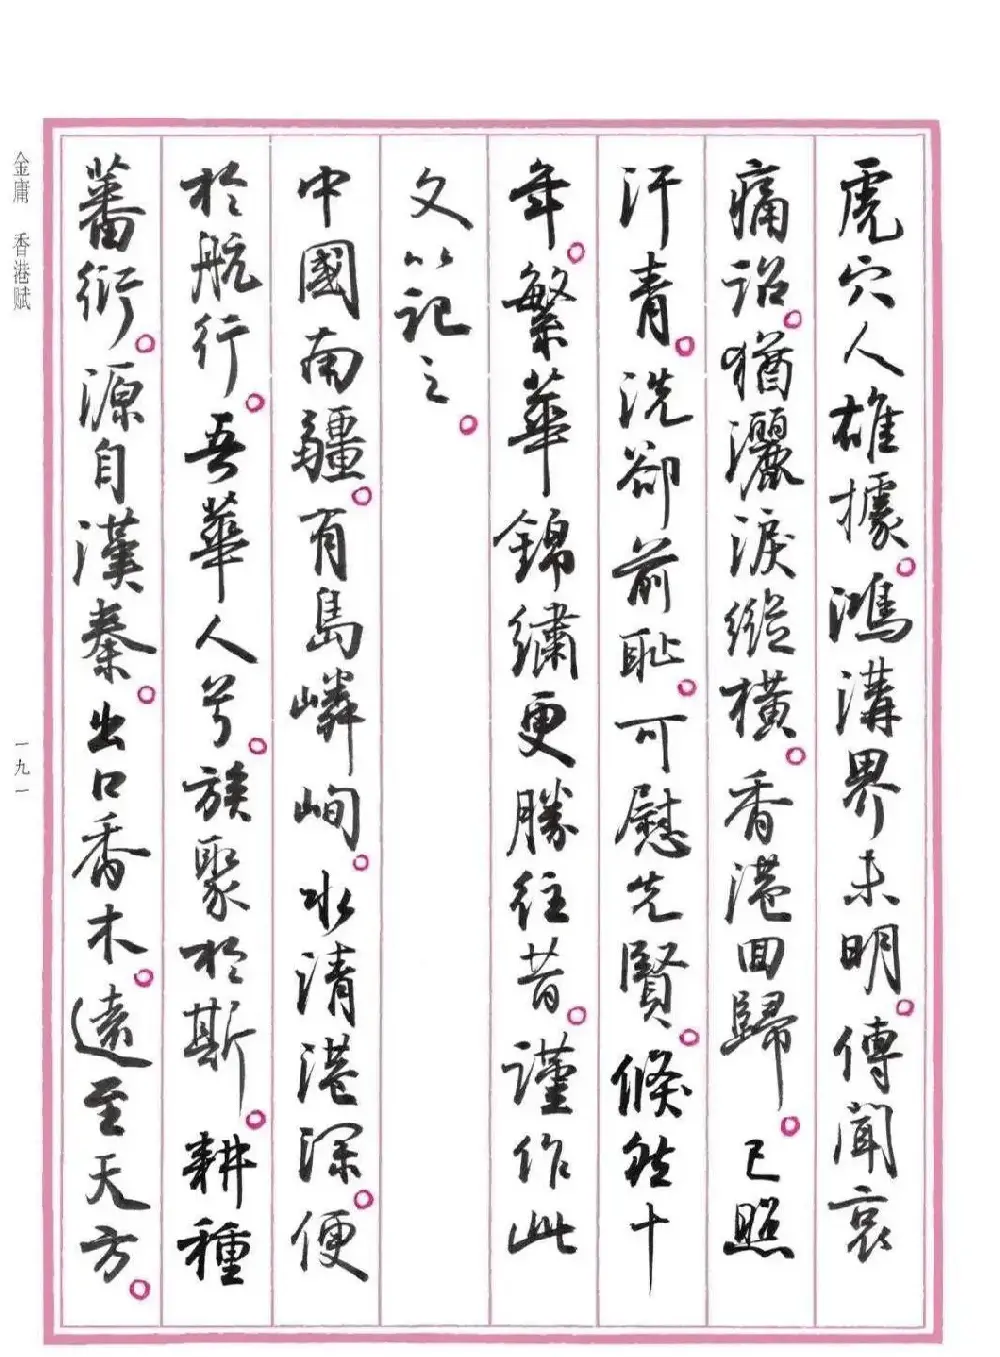 虎穴人雄據。鴻溝界未明。傳聞哀
痛詔。猶灑淚縱橫。香港回歸。已照
汗青。洗卻前恥。可慰先賢。倏然十
年。繁華錦繡更勝往昔。謹作此
文以記之。
中國南疆。有島嶙峋。水清港深。便
於航行。吾華人兮。族聚於斯。耕種
蕃衍。源自漢秦。出口香木。遠至天方。
金庸 香港賦
一九一